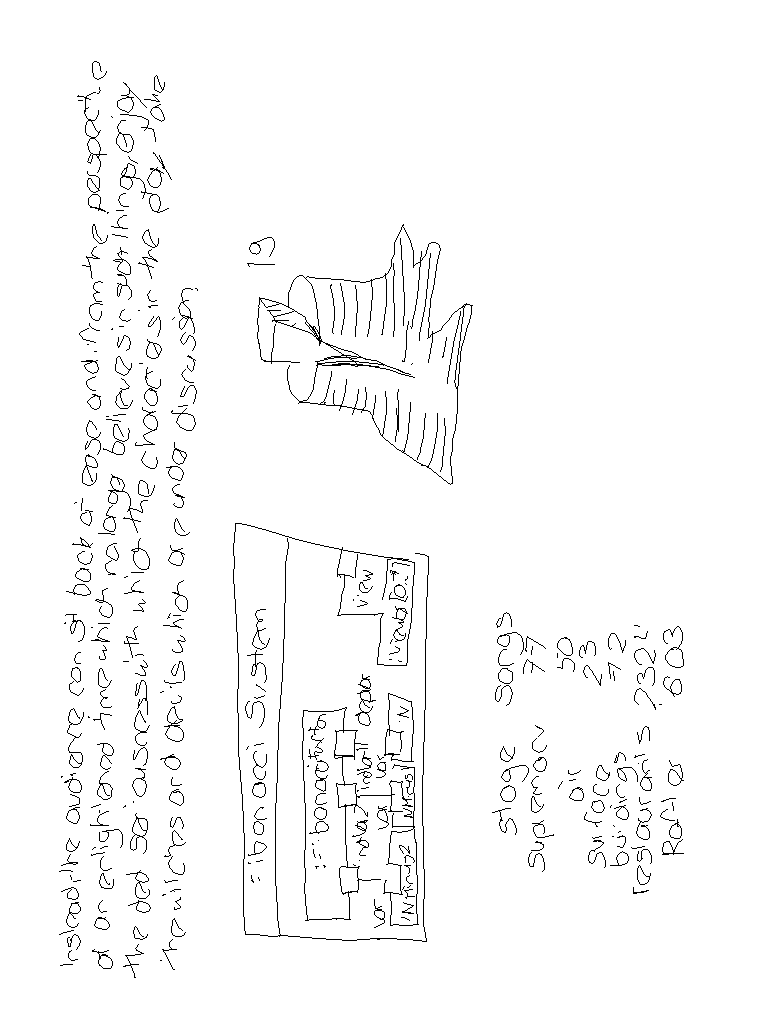 Instead the audience can sit back at ease and from the perspective
of an enlightened time which no longer believes in such things enjoy
the dead seriousness with which the characters in the play take
the witches and devils which are under discussion.
19
:Fibonacci System
view
:Viewer[0..*]
N
var
var
var
NMinus1
NMinus2
Stage Songs
Supremacy 77
air 50
Surface 23
buildings 72
restaurants
Rattler 603